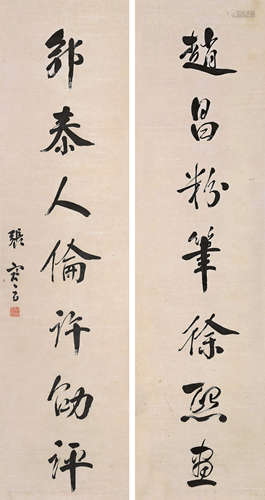 趙昌粉筆徐熙畫
郭泰人倫許劭評
張寔父